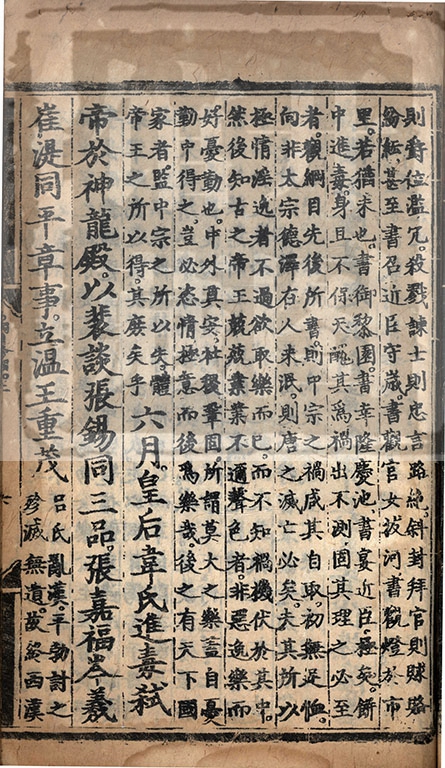 則爵位濫冗。殺戮諫士則忠言路絶。斜封拜官則賕賂
紛紜。甚至書召近臣守歲。書觀官女拔河書觀燈於市
里。若猶未也。書御黎園。書幸隆慶池。書宴近臣。極矣。餅
中進毒。身且不保。天其爲禍出不測。固其理之必至
者。觀綱目先後所書。則中宗之禍咸其自取。初無足恤。
向非太宗德澤在人未泯。則唐之滅亡必矣。夫其所以
極情滛逸者。不過欲取樂而已。而不知禍機伏於其中。
然後知古之帝王兢兢業業不邇聲色者。非惡逸樂而
好憂勤也。中外奠安。社稷鞏固。所謂莫大之樂。盖自憂
勤中得之。豈必恣情極意而後爲樂哉。後之有天下國
家者。監中宗之所以失。體
帝王之所以得。其庶矣乎
六月。皇后韋氏進毒弑
帝於神龍殿。以裴談張錫同三品。張嘉福岑羲
崔湜同平章事。立溫王重茂
呂氏亂漢。平勃討之
殄滅無遺。故能西漢